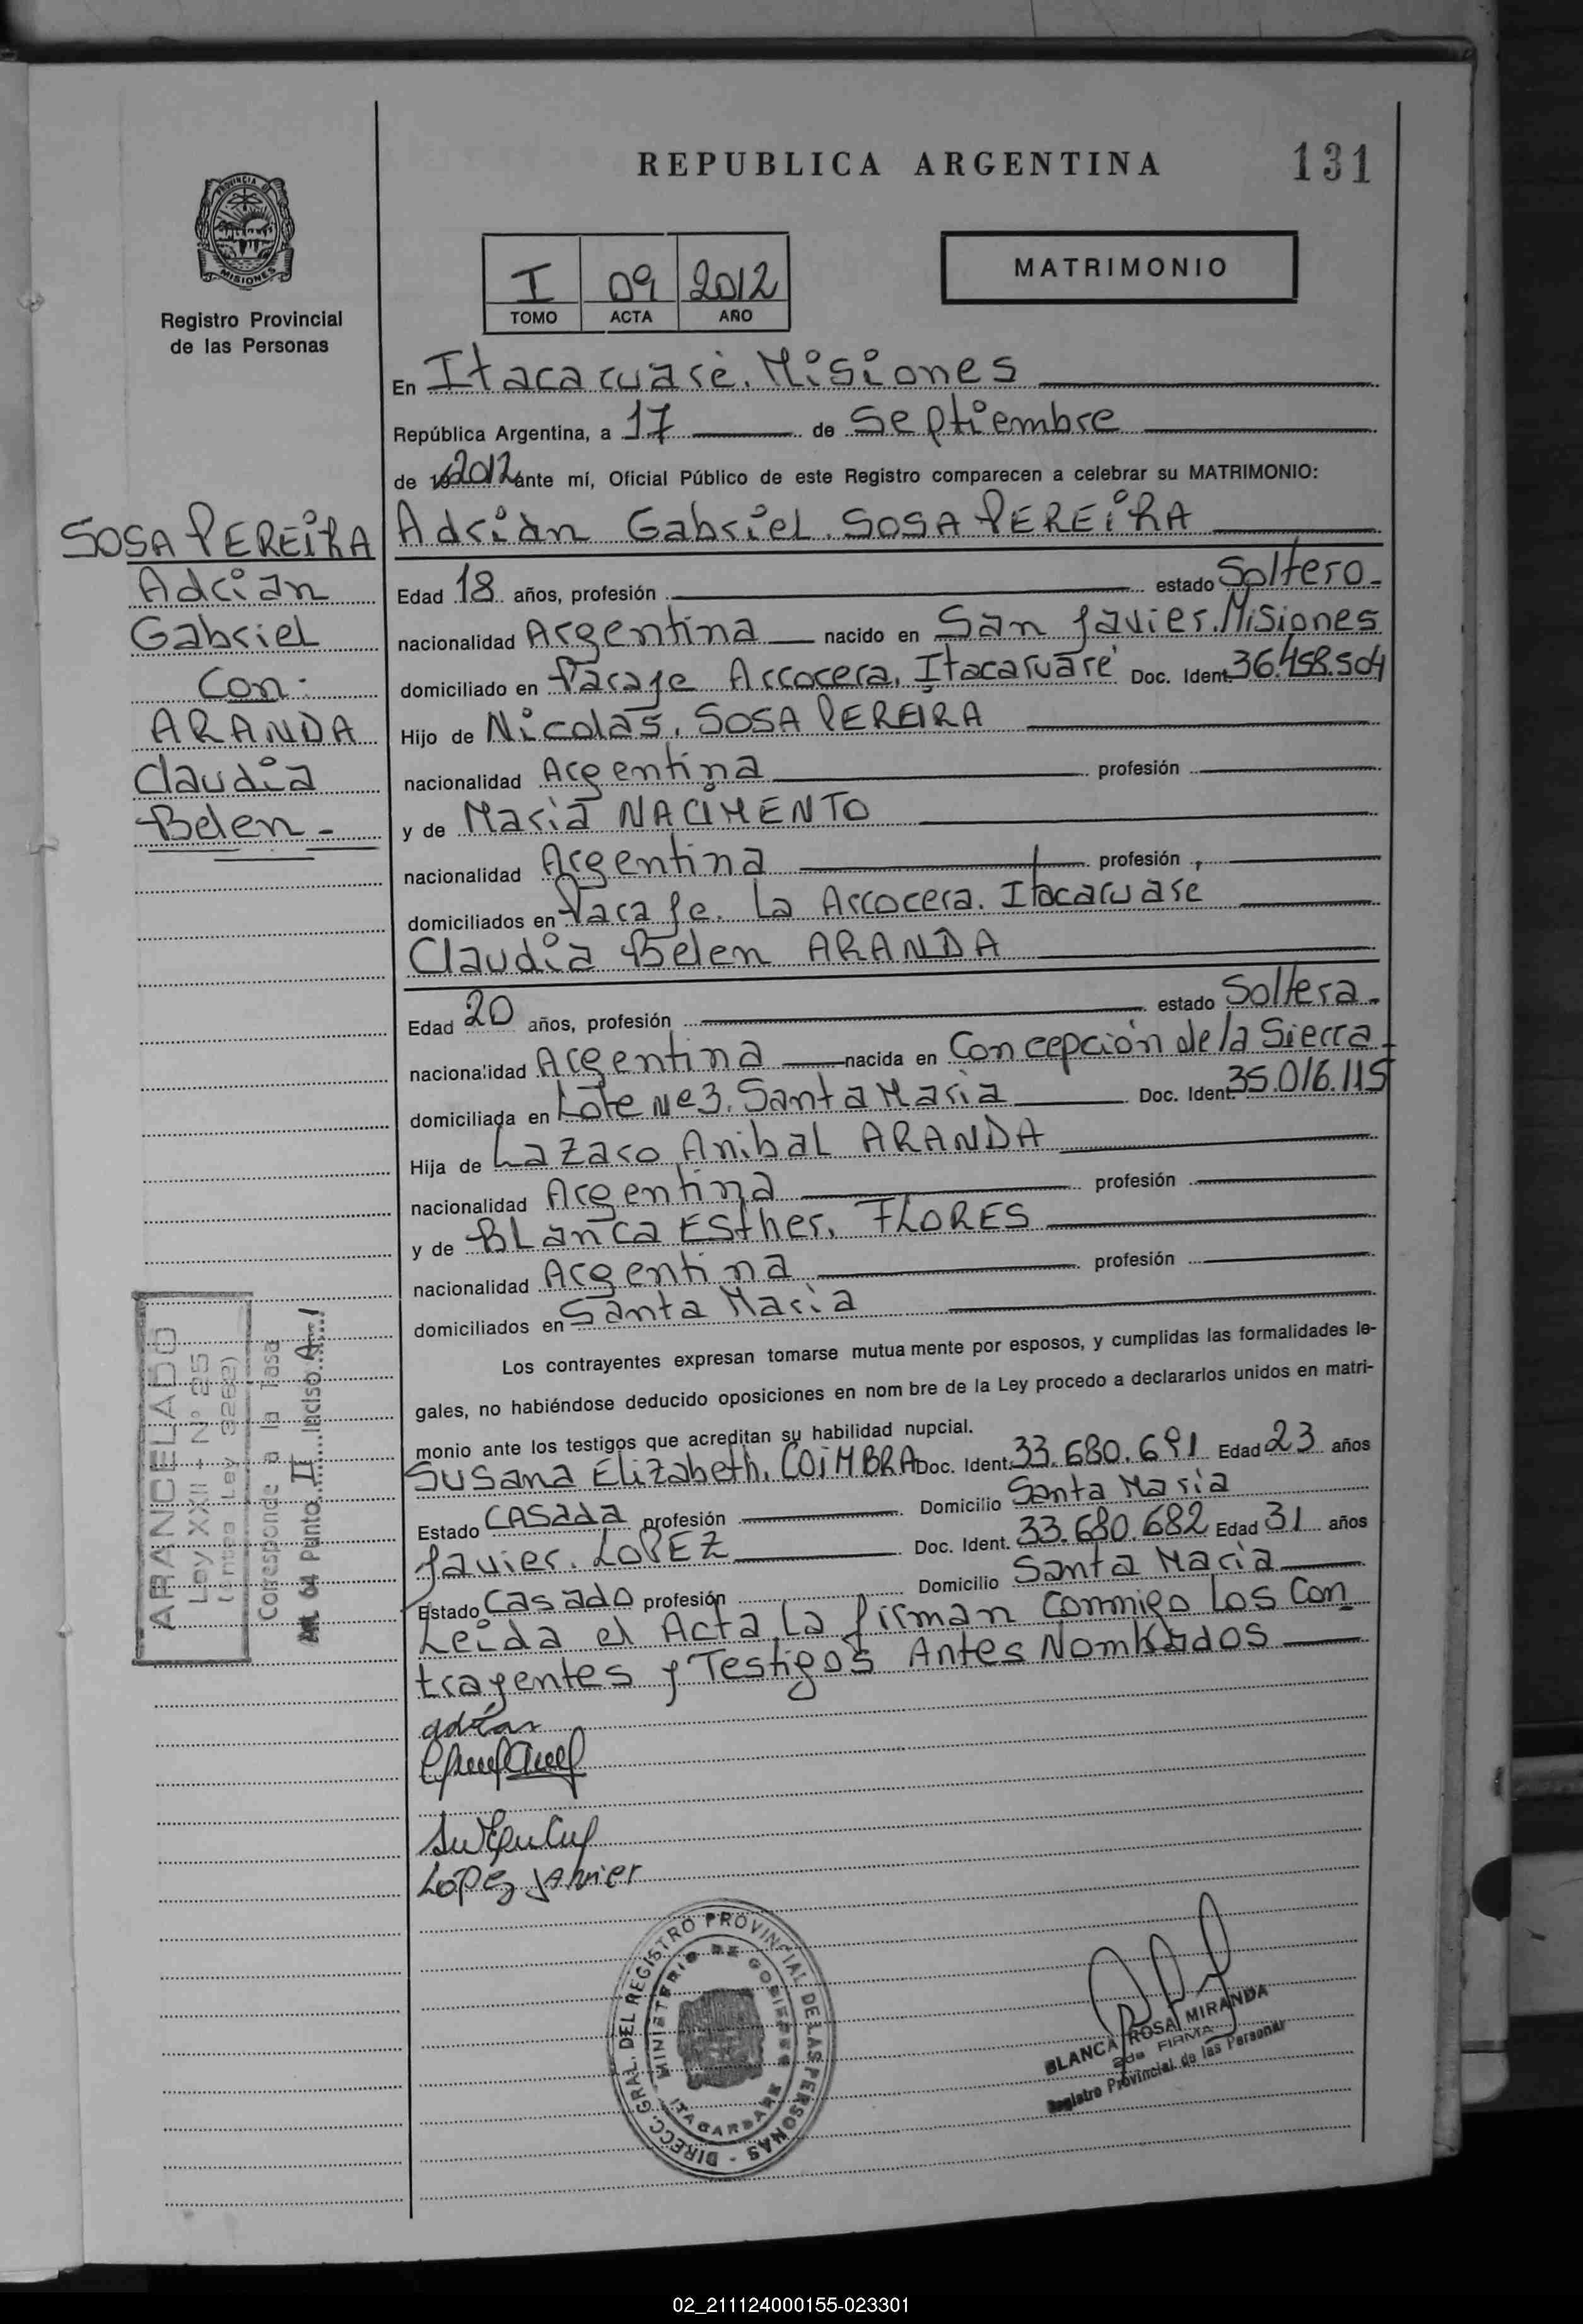 REPUBLICA ARGENTINA
131
PROVINCIA DE
MISIONES
Registro Provincial
de las Personas
I 09 2012
TOMO ACTA AÑO
MATRIMONIO
En Itacaruaré. Misiones
República Argentina, a 17 de Septiembre
de 2012 ante mí, Oficial Público de este Registro comparecen a celebrar su MATRIMONIO:
SOSA PEREiRA
Adrian
Gabriel
Con:
ARANDA
Claudia
Belen-
Adrián Gabriel. SOSA PEREiRA
Edad 18 años, profesión estado Soltero-
nacionalidad Argentina nacido en San Javier. Misiones
domiciliado en Paraje Arrocera, Itacaruaré Doc. Ident. 36.458.504
Hijo de Nicolás. SOSA PEREIRA
nacionalidad Argentina profesión
y de María NACIMENTO
nacionalidad Argentina profesión
domiciliados en Paraje. La Arrocera. Itacaruare
Claudia Belen ARANDA
Edad 20 años, profesión estado Soltera-
nacionalidad Argentina nacida en Concepción de la Sierra-
domiciliada en Lote Nº3. Santa María Doc. Ident. 35.016.115
Hija de Lazaro Anibal ARANDA
nacionalidad Argentina profesión
y de BLanca Esther. FLORES
nacionalidad Argentina profesión
domiciliados en Santa María
Los contrayentes expresan tomarse mutua mente por esposos, y cumplidas las formalidades le-
gales, no habiéndose deducido oposiciones en nom bre de la Ley procedo a declararlos unidos en matri-
monio ante los testigos que acreditan su habilidad nupcial.
Susana Elizabeth. COiMBRA Doc. Ident. 33.680.691 Edad 23 años
Estado Casada profesión Domicilio Santa María
Javier. LOPEZ Doc. Ident. 33.680.682 Edad 31 años
Estado Casado profesión Domicilio Santa María
Leida el Acta La firman Conmigo Los Con
trayentes y Testigos Antes Nombrados
ARANCELADO
Ley XXII - Nº 25
(antes Ley 3262)
Corresponde a la Tasa
Art. 64 Punto II Inciso A-1
adrian
López Javier
DIRECC. GRAL. DEL REGISTRO PROVINCIAL DE LAS PERSONAS -
MINISTERIO DE GOBIERNO
ITACARUARE
BLANCA ROSA MIRANDA
2da FIRMA
Registro Provincial de las Personas
02_211124000155-023301